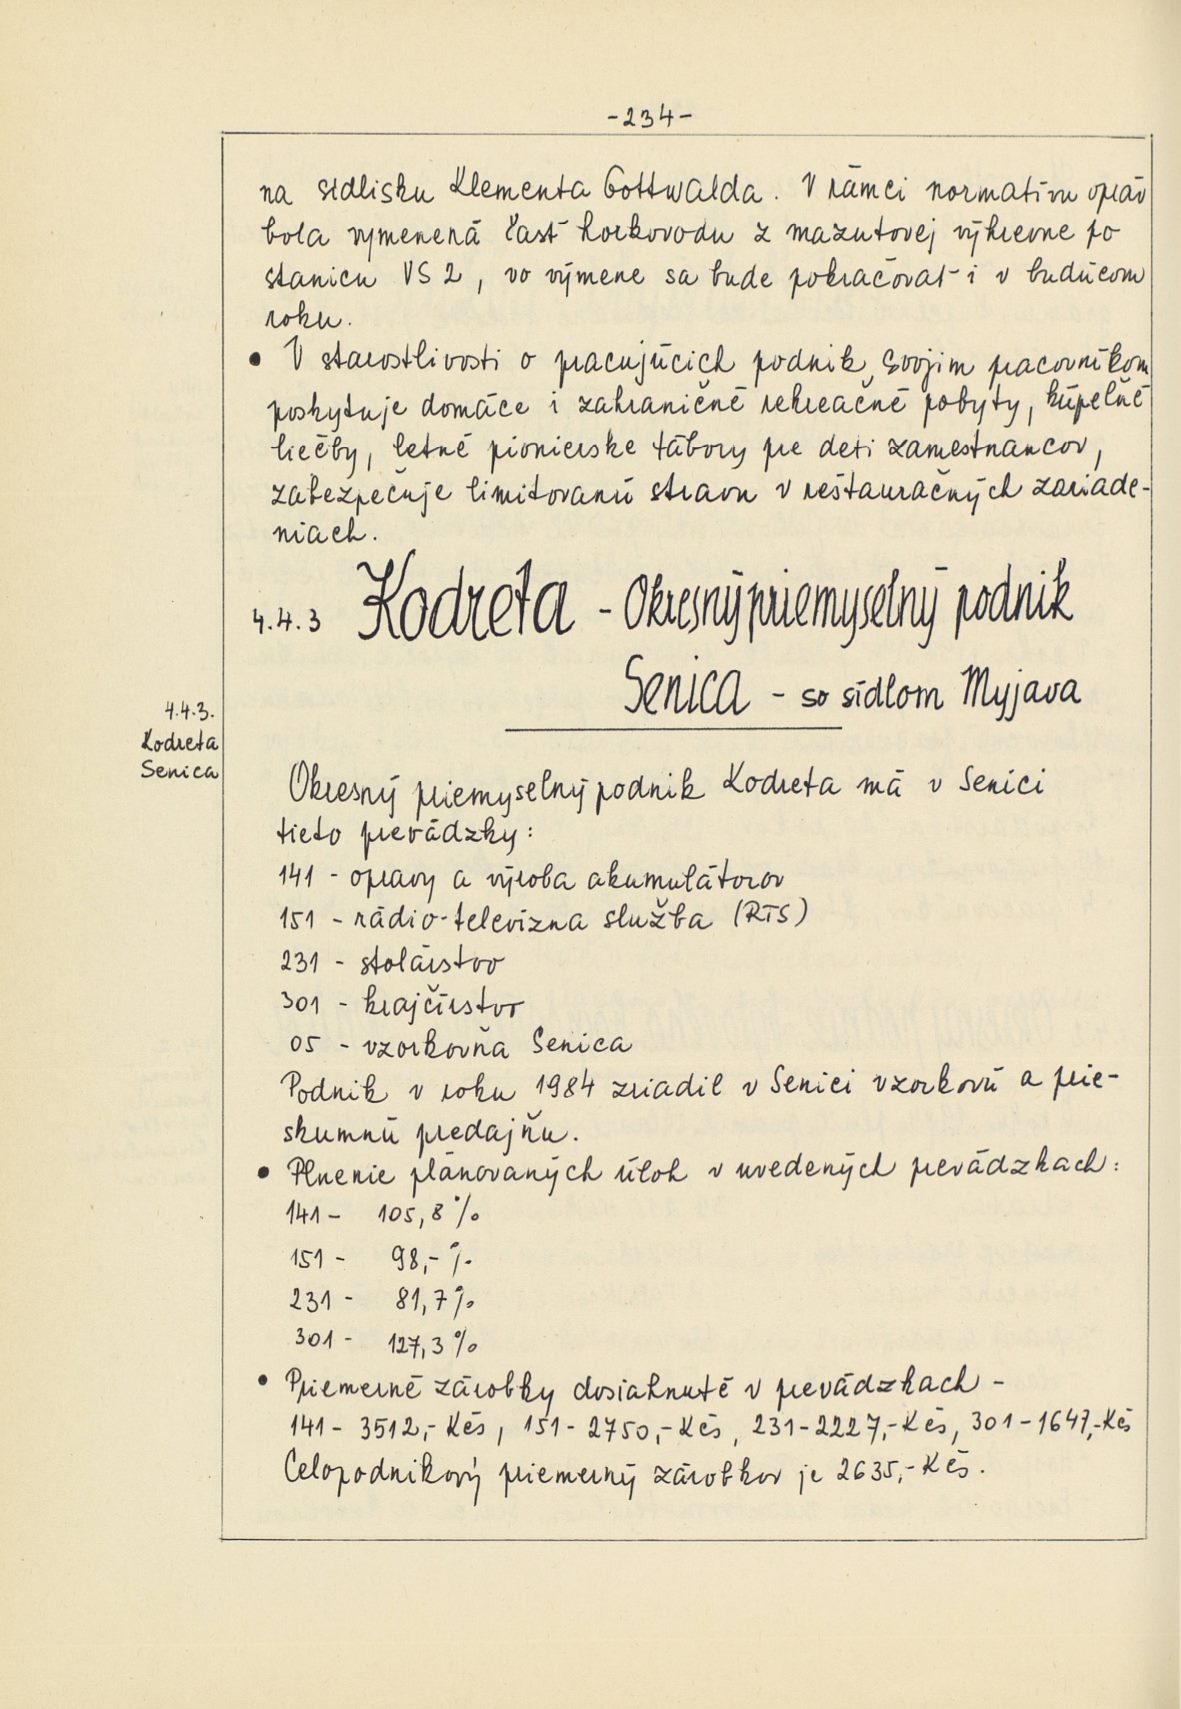 -234-
na sídlisku Klementa Gottwalda. V rámci normatívu opráv
bola vymenená časť horkovodu z mazutovej výhrevne po
stanicu VS 2, vo výmene sa bude pokračovať i v budúcom
roku.
• V starostlivosti o pracujúcich podnik svojim pracovníkom
poskytuje domáce i zahraničné rekreačné pobyty, kúpeľné
liečby, letné pionierske tábory pre deti zamestnancov,
zabezpečuje limitovanú stravu v reštauračných zariade-
niach.
4.4.3 Kodreta - Okresný priemyselný podnik
Senica - so sídlom Myjava
4.4.3.
Kodreta
Senica
Okresný priemyselný podnik Kodreta má v Senici
tieto prevádzky:
141 - opravy a výroba akumulátorov
151 - rádio-televízna služba (RTS)
231 - stolárstvo
301 - krajčírstvo
05 - vzorkovňa Senica
Podnik v roku 1984 zriadil v Senici vzorkovú a prie-
skumnú predajňu.
• Plnenie plánovaných úloh v uvedených prevádzkach:
141 - 105,8 %
151 - 98,- %
231 - 81,7 %
301 - 127,3 %
• Priemerné zárobky dosiahnuté v prevádzkach -
141 - 3512,- Kčs, 151 - 2750,- Kčs, 231 - 2227,- Kčs, 301 - 1647,- Kčs
Celopodnikový priemerný zárobkov je 2635,- Kčs.